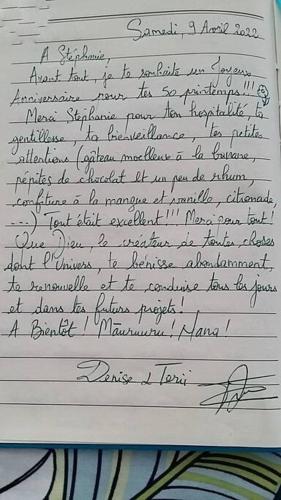 Samedi, 9 Avril 2022
A Stéphanie,
Avant tout, je te souhaite un Joyeux
Anniversaire pour tes 50 printemps!!!
Merci Stéphanie pour ton hospitalité, ta
gentillesse, ta bienveillance, tes petites
attentions (gâteau moelleux à la banane,
pépites de chocolat et un peu de rhum,
confiture à la mangue et vanille, citronade,
...) Tout était excellent!!! Merci pour tout!
Que Dieu le créateur de toutes choses
dont l'Univers, te bénisse abondamment,
te renouvelle et te conduise tous les jours
et dans tes futurs projets!
A Bientôt! Māuruuru! Nana!
Denise & Terii